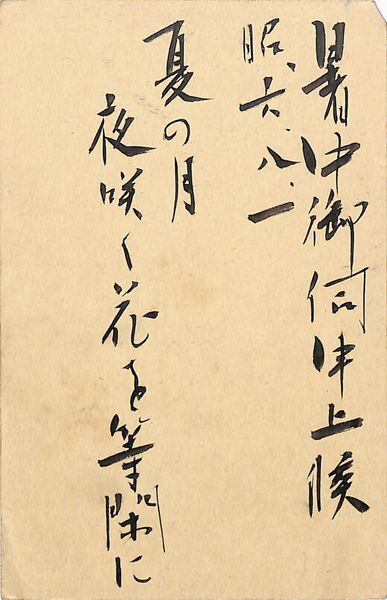 暑中御伺申上候
昭、六、八、一
夏の月
夜咲く花を等閑に